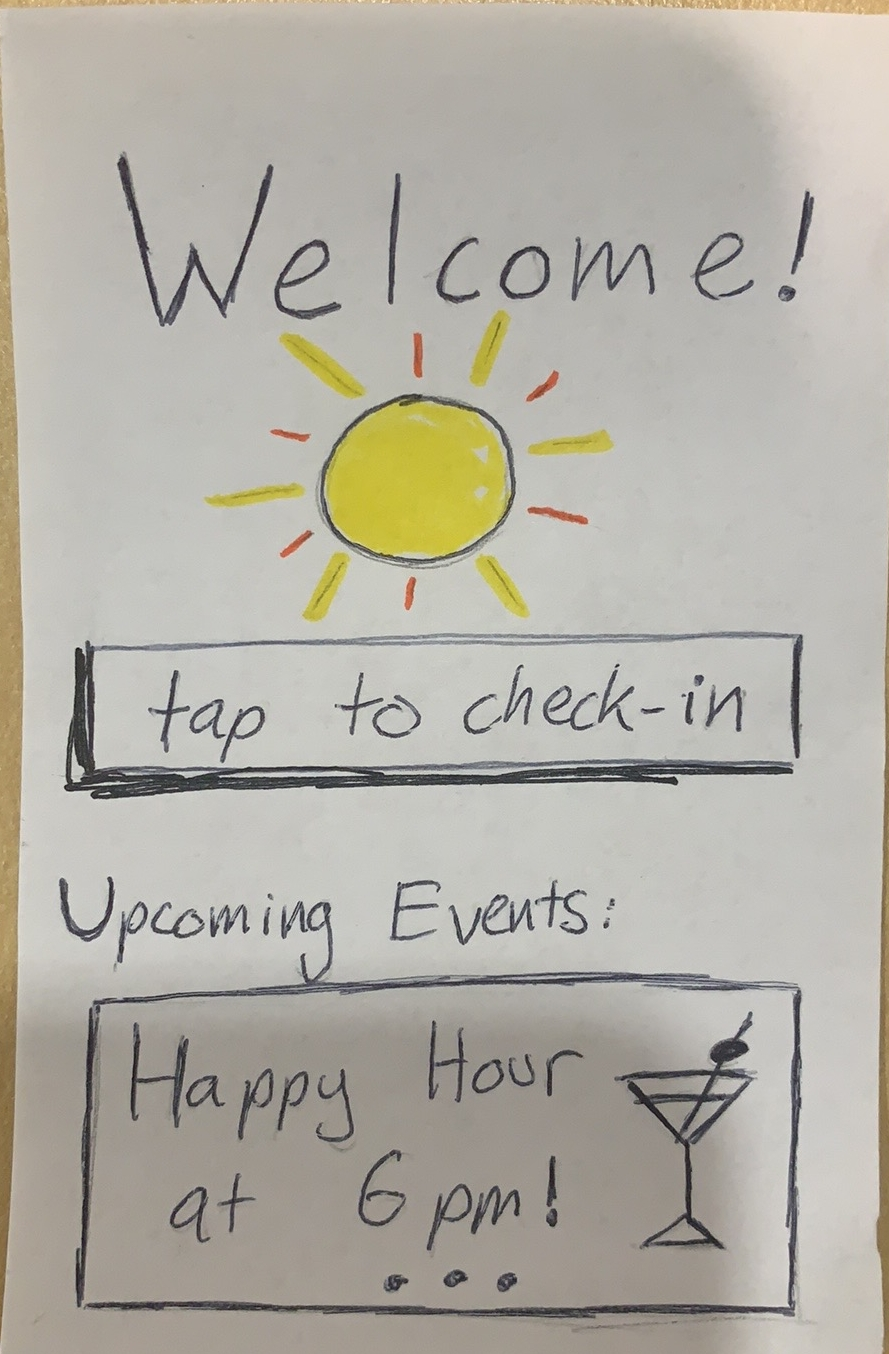 Welcome!
tap to check-in
Upcoming Events:
Happy Hour
at 6 pm!